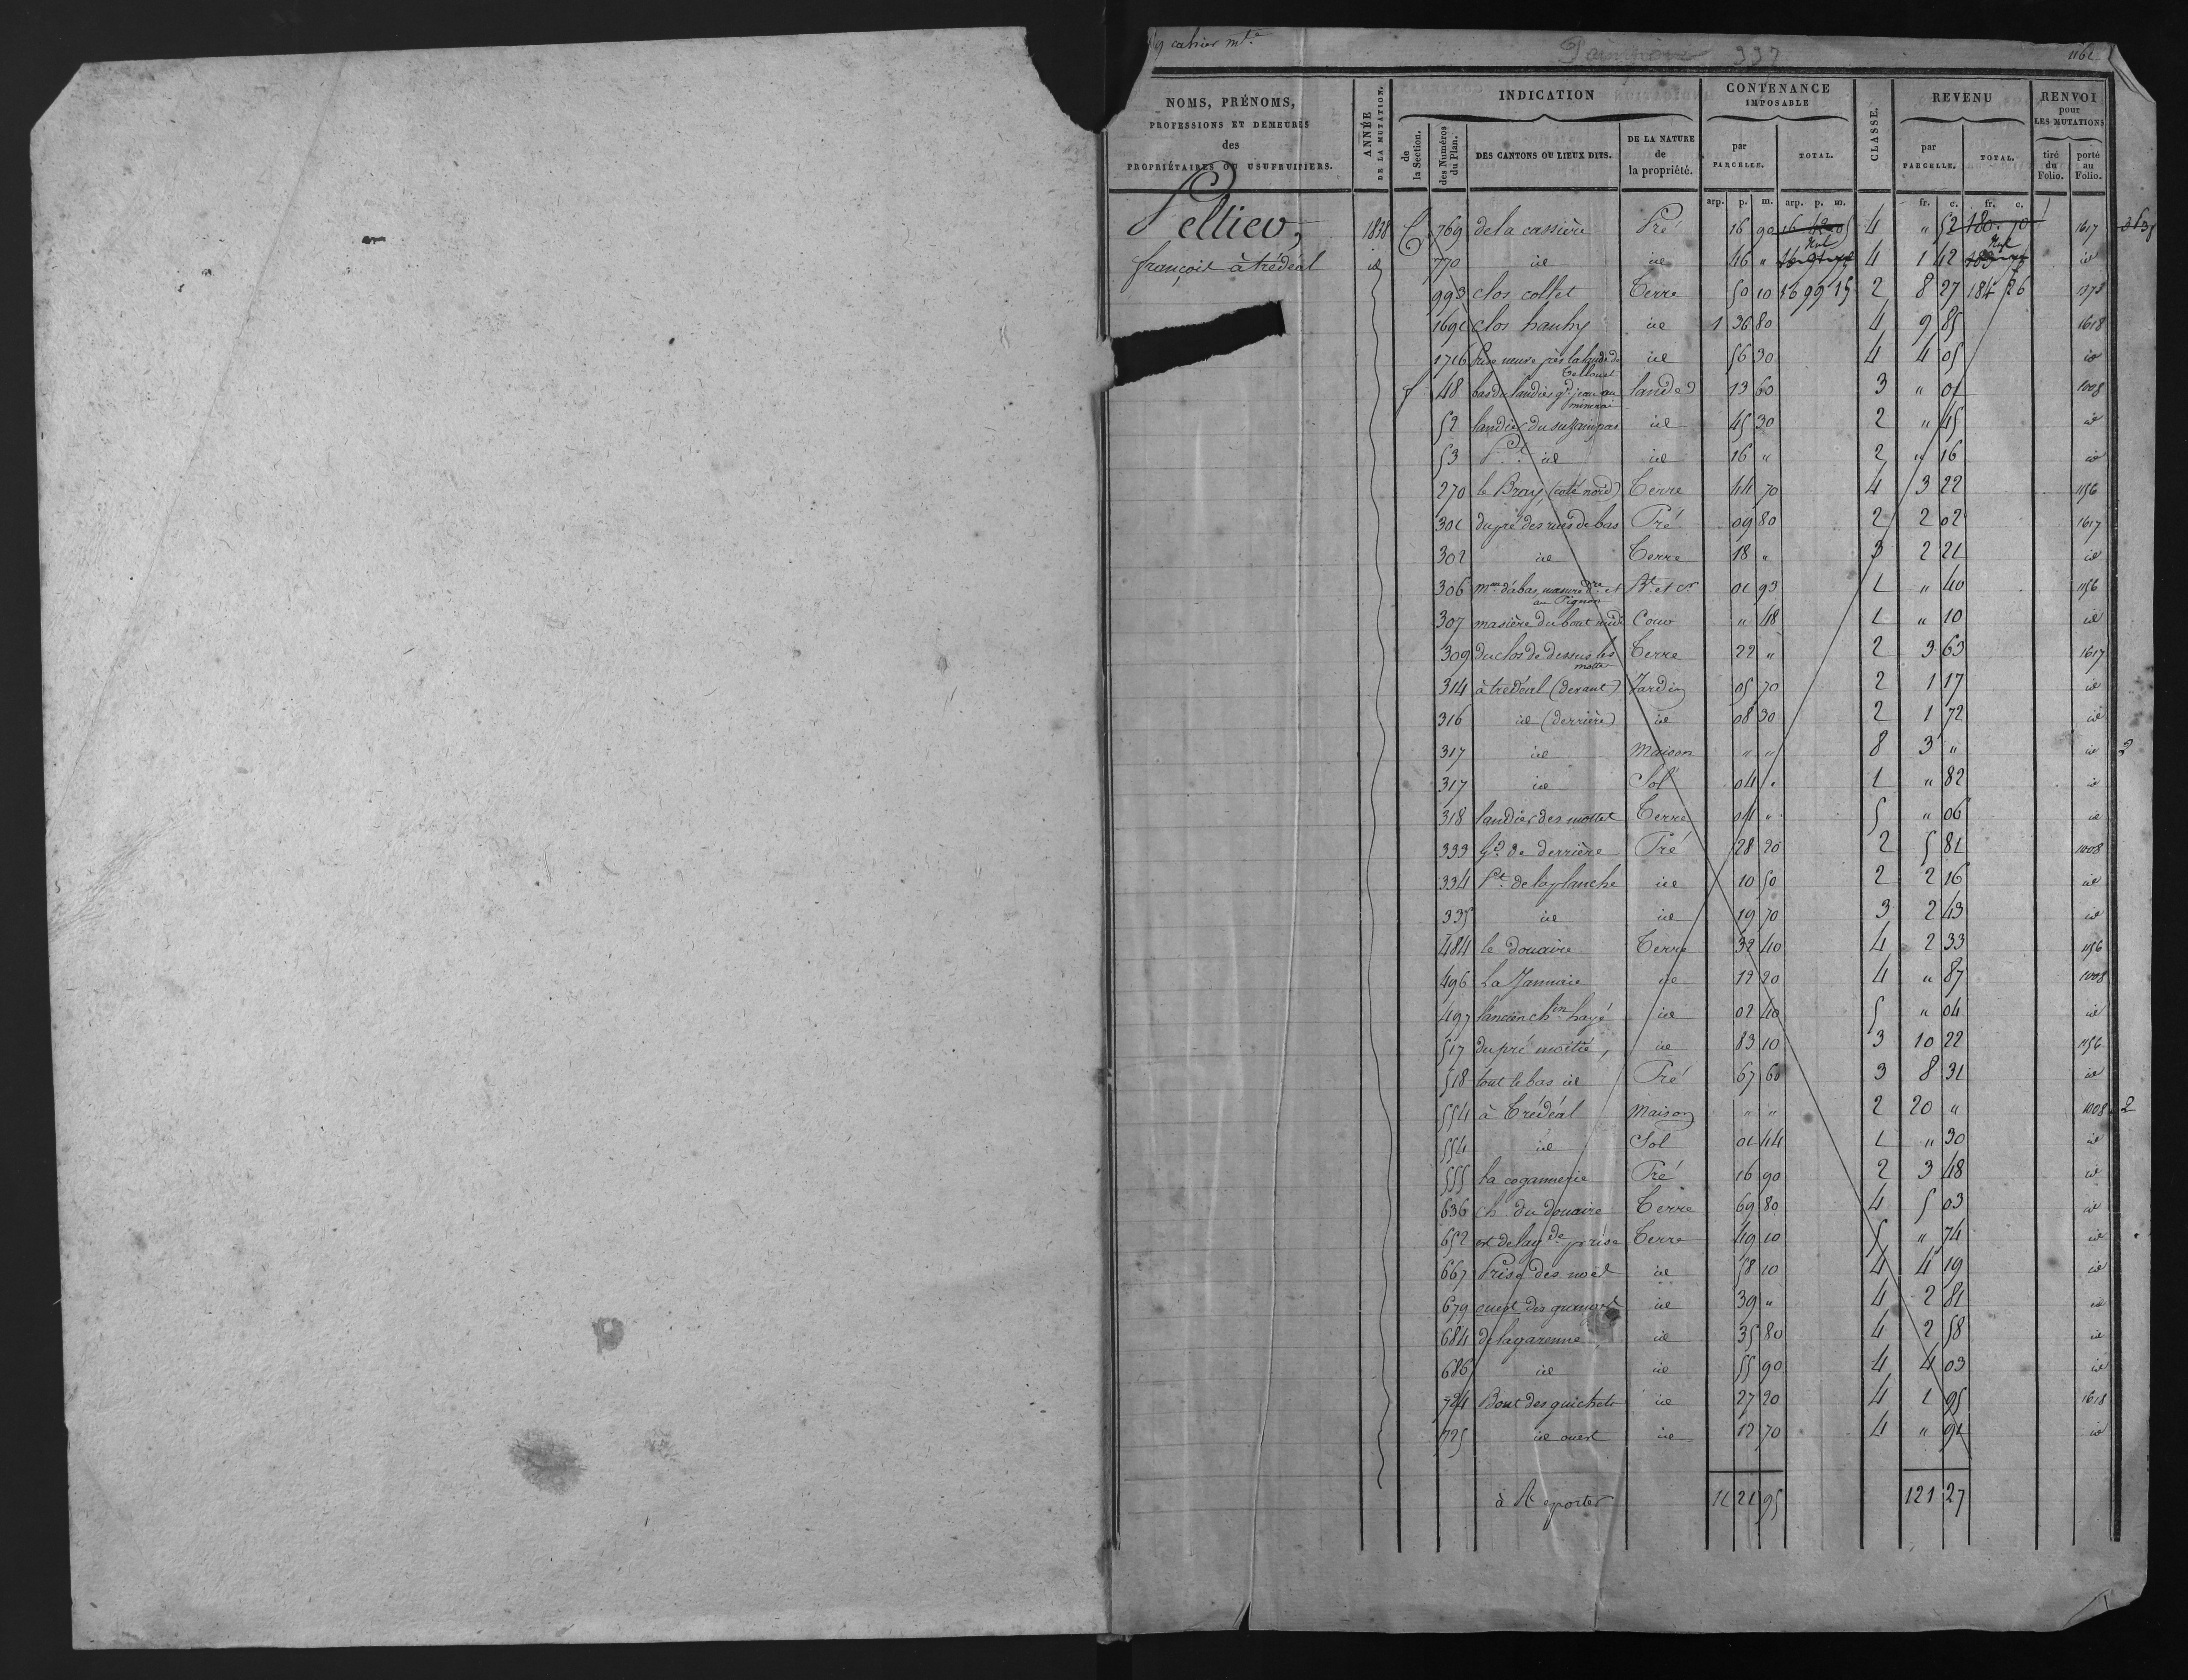 9 cahier mt.e
Paimpont 337
1161
NOMS, PRÉNOMS, PROFESSIONS ET DEMEURES des PROPRIÉTAIRES OU USUFRUITIERS.
ANNÉE DE LA MUTATION.
INDICATION
de la Section.
des Numéros du Plan.
DES CANTONS OU LIEUX DITS.
DE LA NATURE de la propriété.
CONTENANCE IMPOSABLE
par PARCELLE.
TOTAL.
CLASSE.
REVENU
par PARCELLE.
TOTAL.
RENVOI pour LES MUTATIONS
tiré du Folio.
porté au Folio.
arp. p. m. arp. p. m. fr. c. fr. c.
Peltier, 1838 C 769 de la cassière Pré 16 90 4 " 52 180 70 1617
françois à trédéal id 770 id id 46 " 4 1 42 id
993 clos collet Terre 50 10 16 99 15 2 8 27 184 26
1691 clos hauhy id 1 36 80 4 9 85 1618
1716 près la lande de Telhouet id 56 30 4 4 05 id
f 48 bas du landier gd jean au landes 13 60 3 " 01 1008
52 landier du id 45 30 2 " 45 id
53 id id 16 " 2 " 16 id
270 le Bray (coté nord) Terre 44 70 4 3 22 1156
301 du pré des rues de bas Pré 09 80 2 2 02 1617
302 id Terre 18 " 3 2 21 id
306 mon d'abas masure et au Pignon Bt et cr 01 93 1 " 40 1156
307 masière du bout midi Cour " 48 1 " 10 id
309 du clos de dessus les mottes Terre 22 " 2 3 63 1617
314 à trédéal (devant) Jardin 05 70 2 1 17 id
316 id (derrière) id 08 30 2 1 72 id
317 id Maison " " 8 3 " id 2
317 id Sol 04 " 1 " 82 id
318 landier des mottes Terre 04 " 5 " 06 id
333 gd de derrière Pré 28 20 2 5 81 1008
334 Pt de la planche id 10 50 2 2 16 id
335 id id 19 70 3 2 43 id
484 le douaire Terre 32 40 4 2 33 1156
496 La Jannaie id 12 20 4 " 87 1008
497 l'ancien chin hayé id 02 40 5 " 04 id
517 du pré moitié, id 83 10 3 10 22 1156
518 tout le bas id Pré 67 60 3 8 31 id
554 à Trédéal Maison " " 2 20 " 1008 2
554 id Sol 01 44 1 " 30 id
555 la cogannerie Pré 16 90 2 3 48 id
636 ch. du douaire Terre 69 80 4 5 03 id
652 est de la gde prise Terre 49 10 5 " 74 id
667 Prise des noël id 58 10 4 4 19 id
679 ouest des id 39 " 4 2 81 id
684 de la garenne id 35 80 4 2 58 id
686 id id 55 90 4 4 03 id
724 Bout des guichets id 27 20 4 1 95 1618
725 id ouest id 12 70 4 " 91 id
à Reporter 11 21 95 121 27